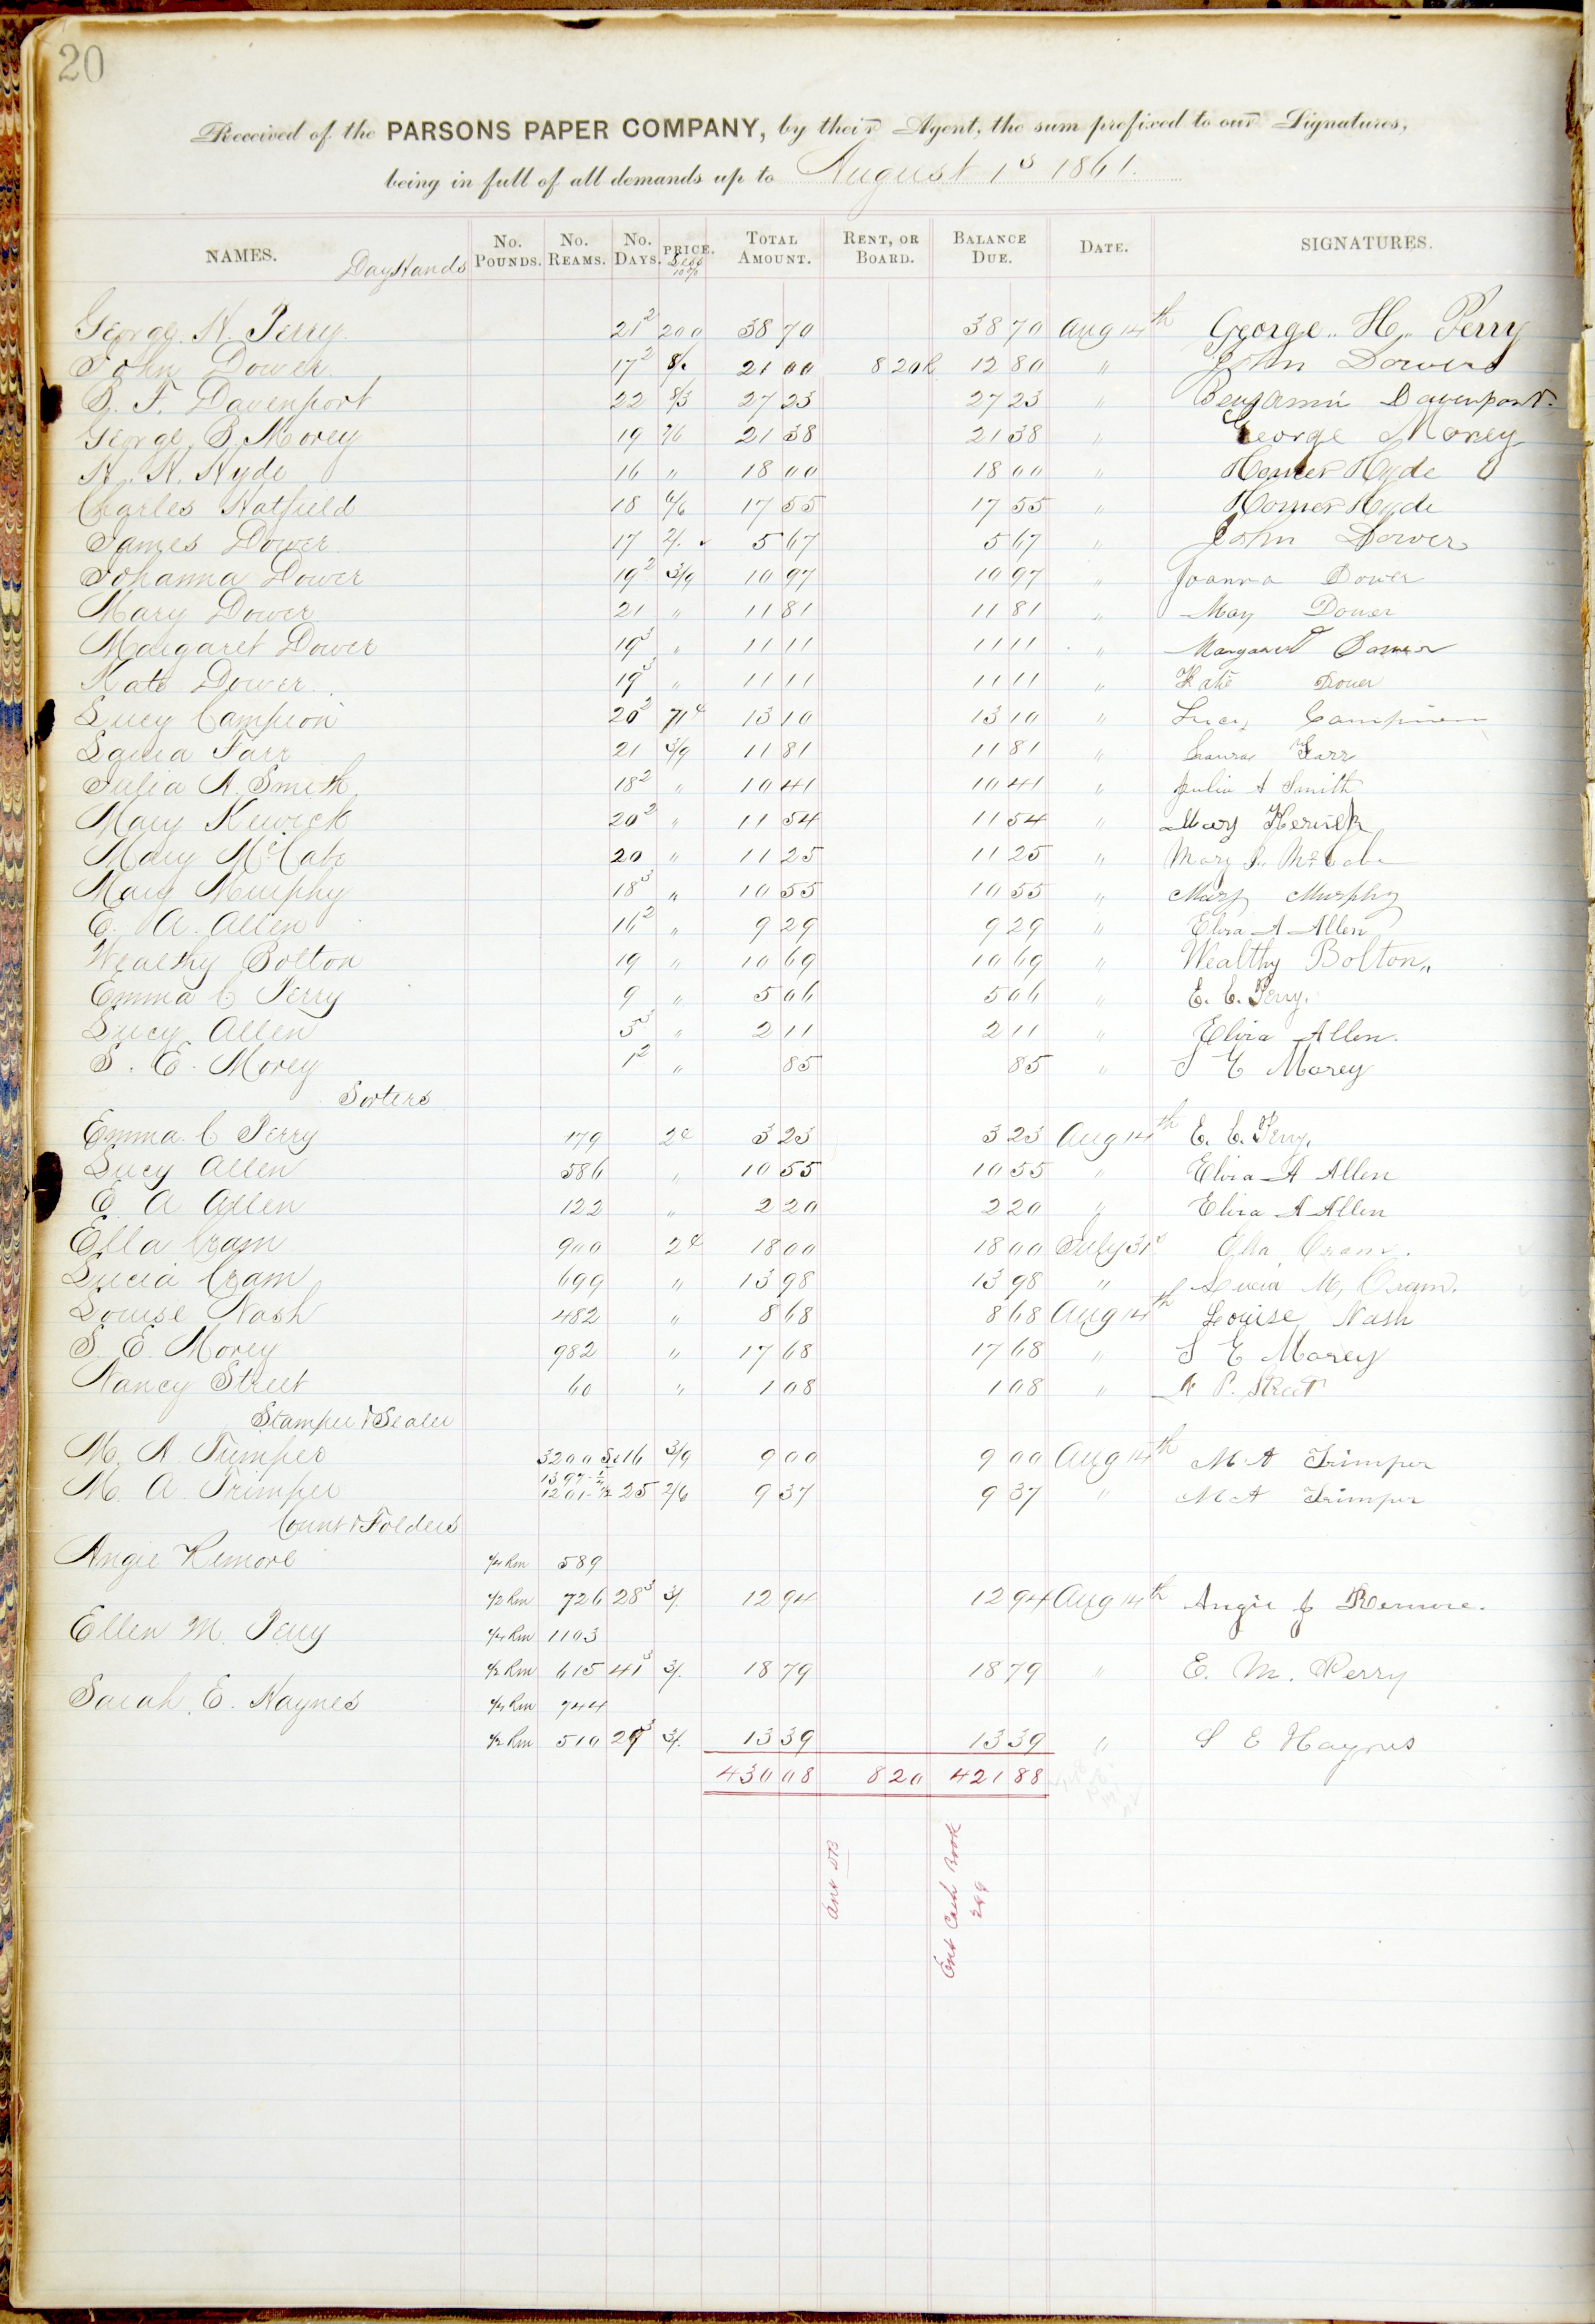 20
Received of the PARSONS PAPER COMPANY, by their Agent, the sum prefixed to our Signatures,
being in full of all demands up to August 1s 1861.
NAMES. Day Hands No. POUNDS. No. REAMS. No. DAYS. PRICE. Less 10% TOTAL AMOUNT. RENT, OR BOARD. BALANCE DUE. DATE. SIGNATURES.
George H. Perry 21 2 200 38 70 38 70 Aug 14th George H. Perry
John Dower 17 2 8/. 21 00 8 20 R 12 80 " John Dower
B. F. Davenport 22 8/3 27 23 27 23 " Benjamin Davenport
George B. Morey 19 7/6 21 38 21 38 " George Morey
H. H. Hyde 16 " 18 00 18 00 " Homer Hyde
Charles Hatfield 18 6/6 17 55 17 55 " Homer Hyde
James Dower 17 2/. 5 67 5 67 " John Dower
Johanna Dower 19 2 3/9 10 97 10 97 " Joanna Dower
Mary Dower 21 " 11 81 11 81 " May Dower
Margaret Dower 19 3 " 11 11 11 11 " Margaret Dower
Kate Dower 19 3 " 11 11 11 11 " Katie Dower
Lucy Campion 20 2 71c 13 10 13 10 " Lucy Campion
Laura Farr 21 3/9 11 81 11 81 " Laura Farr
Julia A. Smith 18 2 " 10 41 10 41 " Julia A Smith
Mary Kerwick 20 2 " 11 54 11 54 " Mary Kerwick
Mary McCabe 20 " 11 25 11 25 " Mary McCabe
Mary Murphy 18 3 " 10 55 10 55 " Mary Murphy
E. A. Allen 16 2 " 9 29 9 29 " Elvira A Allen
Wealthy Bolton 19 " 10 69 10 69 " Wealthy Bolton
Emma C Perry 9 " 5 06 5 06 " E. C. Perry.
Lucy Allen 3 3 " 2 11 2 11 " Elvira Allen.
S. E. Morey 1 2 " 85 85 " S E Morey
Sorters
Emma C Perry 179 2c 3 23 3 23 Aug 14th E. C. Perry.
Lucy Allen 586 " 10 55 10 55 " Elvira A Allen
E A Allen 122 " 2 20 2 20 " Elvira A Allen
Ella Cram 900 2c 18 00 18 00 July 31s Ella Cram.
Lucia Cram 699 " 13 98 13 98 " Lucia M. Cram.
Louise Nash 482 " 8 68 8 68 Aug 14th Louise Nash
S. E. Morey 982 " 17 68 17 68 " S E Morey
Nancy Street 60 " 1 08 1 08 " N P. Street
Stamper & Sealer
M. A. Trimper 3200 16 3/9 9 00 9 00 Aug 14th M. A Trimper
M. A. Trimper 1397 1201 25 2/6 9 37 9 37 " M A Trimper
Count & Folders
Angie Remore 1/4 Rm 589
1/2 Rm 726 28 3 3/. 12 94 12 94 Aug 14th Angie J Remore.
Ellen M. Perry 1/4 Rm 1103
1/2 Rm 615 41 3 3/. 18 79 18 79 " E. M. Perry
Sarah E. Haynes 1/4 Rm 744
1/2 Rm 510 29 3 3/. 13 39 13 39 " S E Haynes
430 08 8 20 421 88
Ent Cash Book
249